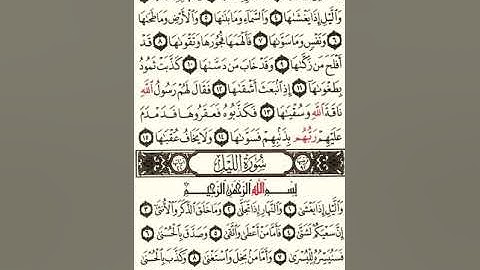 وَٱلَّيْلِ إِذَا يَغْشَىٰهَا ٤ وَٱلسَّمَآءِ وَمَا بَنَىٰهَا ٥ وَٱلْأَرْضِ وَمَا طَحَىٰهَا
٦ وَنَفْسٍ وَمَا سَوَّىٰهَا ٧ فَأَلْهَمَهَا فُجُورَهَا وَتَقْوَىٰهَا ٨ قَدْ
أَفْلَحَ مَن زَكَّىٰهَا ٩ وَقَدْ خَابَ مَن دَسَّىٰهَا ١٠ كَذَّبَتْ ثَمُودُ
بِطَغْوَىٰهَآ ١١ إِذِ ٱنۢبَعَثَ أَشْقَىٰهَا ١٢ فَقَالَ لَهُمْ رَسُولُ ٱللَّهِ
نَاقَةَ ٱللَّهِ وَسُقْيَٰهَا ١٣ فَكَذَّبُوهُ فَعَقَرُوهَا فَدَمْدَمَ
عَلَيْهِمْ رَبُّهُم بِذَنۢبِهِمْ فَسَوَّىٰهَا ١٤ وَلَا يَخَافُ عُقْبَٰهَا ١٥
سُورَةُ ٱللَّيْلِ
بِسْمِ ٱللَّهِ ٱلرَّحْمَٰنِ ٱلرَّحِيمِ
وَٱلَّيْلِ إِذَا يَغْشَىٰ ١ وَٱلنَّهَارِ إِذَا تَجَلَّىٰ ٢ وَمَا خَلَقَ ٱلذَّكَرَ وَٱلْأُنثَىٰٓ ٣
إِنَّ سَعْيَكُمْ لَشَتَّىٰ ٤ فَأَمَّا مَنْ أَعْطَىٰ وَٱتَّقَىٰ ٥ وَصَدَّقَ بِٱلْحُسْنَىٰ ٦
فَسَنُيَسِّرُهُۥ لِلْيُسْرَىٰ ٧ وَأَمَّا مَنۢ بَخِلَ وَٱسْتَغْنَىٰ ٨ وَكَذَّبَ بِٱلْحُسْنَىٰ